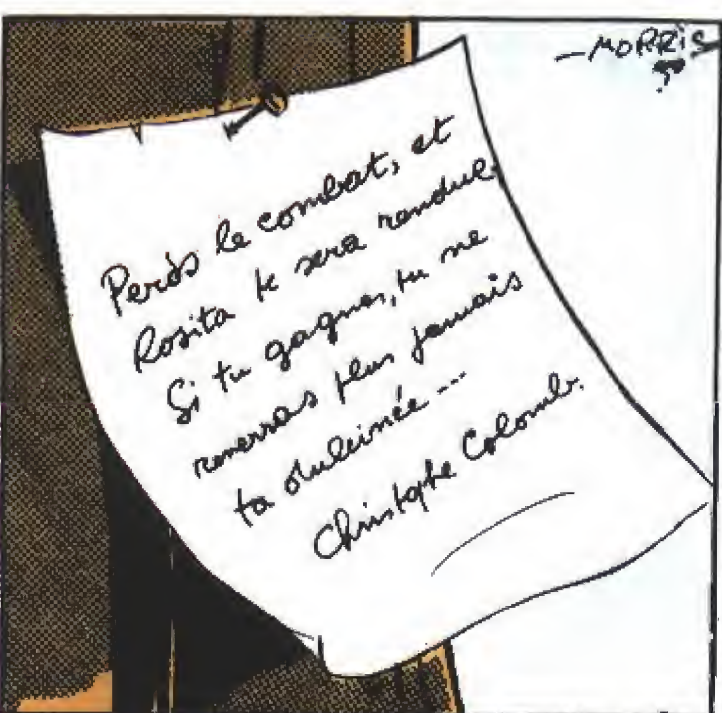 MORRIS
Perds le combat, et
Rosita te sera rendue.
Si tu gagnes, tu ne
reverras plus jamais
ta dulcinée ...
Christophe Colomb.